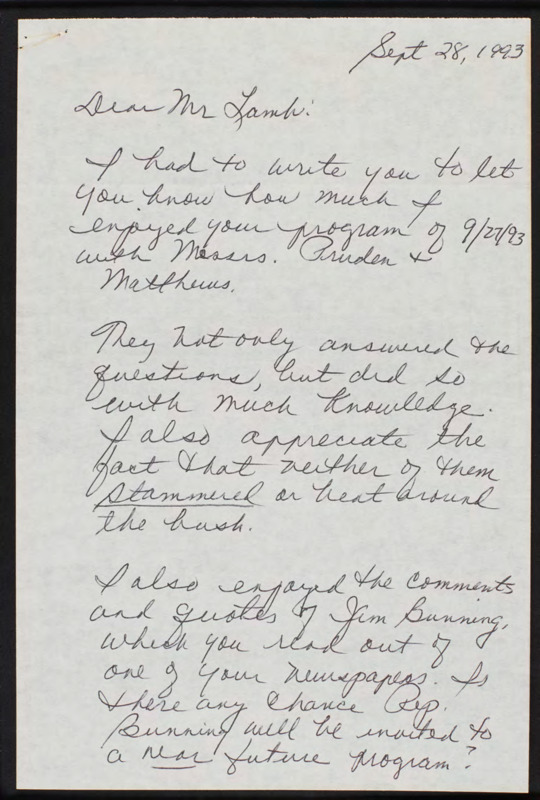 Sept 28, 1993
Dear Mr Lamb:
I had to write you to let
you know how much I
enjoyed your program of 9/27/93
with Messrs. Pruden &
Matthews.
They not only answered the
questions, but did so
with much knowledge.
I also appreciate the
fact that neither of them
stammered or beat around
the bush.
I also enjoyed the comments
and quotes of Jim Bunning,
which you read out of
one of your newspapers. Is
there any chance Rep.
Bunning will be invited to
a near future program?